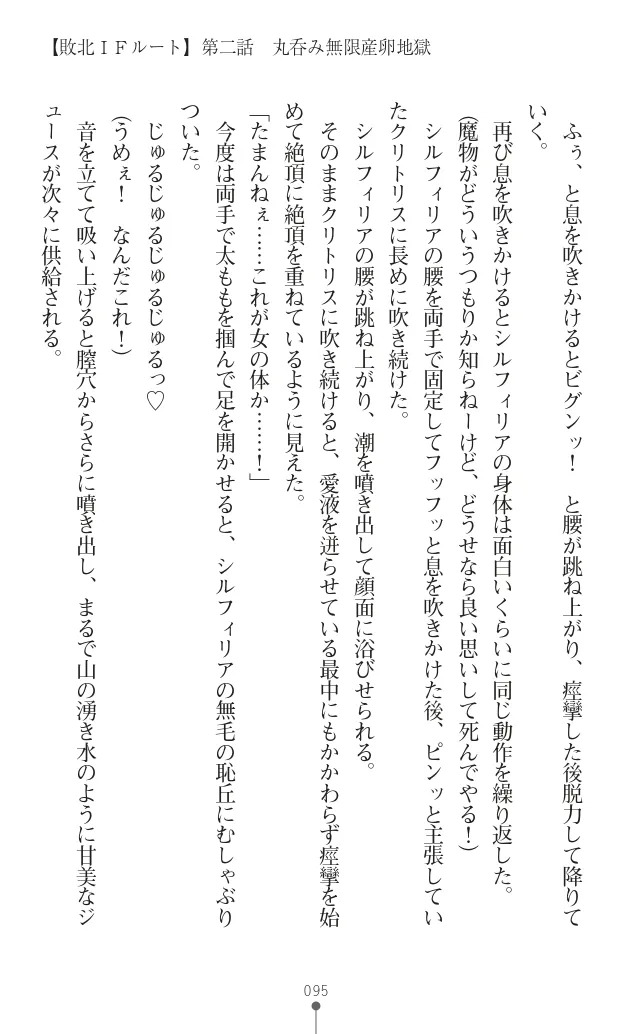 【敗北ＩＦルート】 第二話　丸呑み無限産卵地獄
　ふぅ、と息を吹きかけるとビグンッ！　と腰が跳ね上がり、痙攣した後脱力して降りて
いく。
　再び息を吹きかけるとシルフィリアの身体は面白いくらいに同じ動作を繰り返した。
（魔物がどういうつもりか知らねーけど、どうせなら良い思いして死んでやる！）
　シルフィリアの腰を両手で固定してフッフッと息を吹きかけた後、ピンッと主張してい
たクリトリスに長めに吹き続けた。
　シルフィリアの腰が跳ね上がり、潮を噴き出して顔面に浴びせられる。
　そのままクリトリスに吹き続けると、愛液を迸らせている最中にもかかわらず痙攣を始
めて絶頂に絶頂を重ねているように見えた。
「たまんねぇ……これが女の体か……！」
　今度は両手で太ももを掴んで足を開かせると、シルフィリアの無毛の恥丘にむしゃぶり
ついた。
　じゅるじゅるじゅるじゅるっ♡
（うめぇ！　なんだこれ！）
　音を立てて吸い上げると膣穴からさらに噴き出し、まるで山の湧き水のように甘美なジ
ュースが次々に供給される。
095